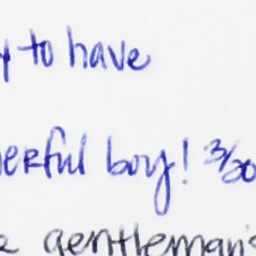 to have
erful boy! 3/20
gentleman's